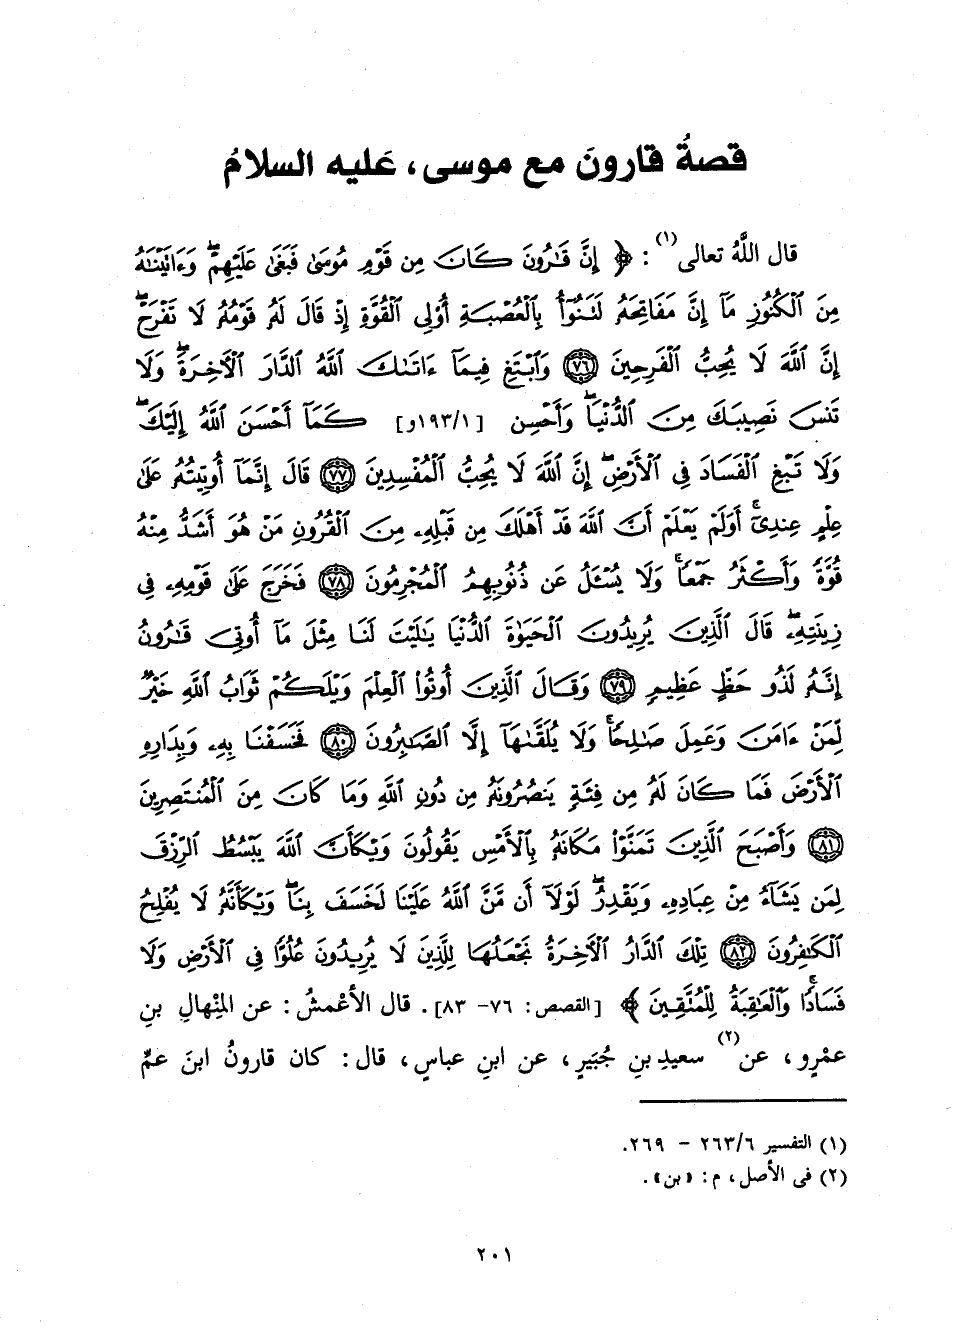 قصةُ قارونَ مع موسى، عَليه السلامُ
قال اللَّهُ تعالى(١): ﴿ إِنَّ قَٰرُونَ كَانَ مِن قَوْمِ مُوسَىٰ فَبَغَىٰ عَلَيْهِمْ ۖ وَءَاتَيْنَٰهُ
مِنَ ٱلْكُنُوزِ مَآ إِنَّ مَفَاتِحَهُۥ لَتَنُوٓأُ بِٱلْعُصْبَةِ أُو۟لِى ٱلْقُوَّةِ إِذْ قَالَ لَهُۥ قَوْمُهُۥ لَا تَفْرَحْ ۖ
إِنَّ ٱللَّهَ لَا يُحِبُّ ٱلْفَرِحِينَ ٧٦ وَٱبْتَغِ فِيمَآ ءَاتَىٰكَ ٱللَّهُ ٱلدَّارَ ٱلْأَخِرَةَ ۖ وَلَا
تَنسَ نَصِيبَكَ مِنَ ٱلدُّنْيَا ۖ وَأَحْسِن [١٩٣/١و] كَمَآ أَحْسَنَ ٱللَّهُ إِلَيْكَ ۖ
وَلَا تَبْغِ ٱلْفَسَادَ فِى ٱلْأَرْضِ ۖ إِنَّ ٱللَّهَ لَا يُحِبُّ ٱلْمُفْسِدِينَ ٧٧ قَالَ إِنَّمَآ أُوتِيتُهُۥ عَلَىٰ
عِلْمٍ عِندِىٓ ۚ أَوَلَمْ يَعْلَمْ أَنَّ ٱللَّهَ قَدْ أَهْلَكَ مِن قَبْلِهِۦ مِنَ ٱلْقُرُونِ مَنْ هُوَ أَشَدُّ مِنْهُ
قُوَّةً وَأَكْثَرُ جَمْعًا ۚ وَلَا يُسْـَٔلُ عَن ذُنُوبِهِمُ ٱلْمُجْرِمُونَ ٧٨ فَخَرَجَ عَلَىٰ قَوْمِهِۦ فِى
زِينَتِهِۦ ۖ قَالَ ٱلَّذِينَ يُرِيدُونَ ٱلْحَيَوٰةَ ٱلدُّنْيَا يَٰلَيْتَ لَنَا مِثْلَ مَآ أُوتِىَ قَٰرُونُ
إِنَّهُۥ لَذُو حَظٍّ عَظِيمٍ ٧٩ وَقَالَ ٱلَّذِينَ أُوتُوا۟ ٱلْعِلْمَ وَيْلَكُمْ ثَوَابُ ٱللَّهِ خَيْرٌ
لِّمَنْ ءَامَنَ وَعَمِلَ صَٰلِحًا ۚ وَلَا يُلَقَّىٰهَآ إِلَّا ٱلصَّٰبِرُونَ ٨٠ فَخَسَفْنَا بِهِۦ وَبِدَارِهِ
ٱلْأَرْضَ فَمَا كَانَ لَهُۥ مِن فِئَةٍ يَنصُرُونَهُۥ مِن دُونِ ٱللَّهِ وَمَا كَانَ مِنَ ٱلْمُنتَصِرِينَ
٨١ وَأَصْبَحَ ٱلَّذِينَ تَمَنَّوْا۟ مَكَانَهُۥ بِٱلْأَمْسِ يَقُولُونَ وَيْكَأَنَّ ٱللَّهَ يَبْسُطُ ٱلرِّزْقَ
لِمَن يَشَآءُ مِنْ عِبَادِهِۦ وَيَقْدِرُ ۖ لَوْلَآ أَن مَّنَّ ٱللَّهُ عَلَيْنَا لَخَسَفَ بِنَا ۖ وَيْكَأَنَّهُۥ لَا يُفْلِحُ
ٱلْكَٰفِرُونَ ٨٢ تِلْكَ ٱلدَّارُ ٱلْأَخِرَةُ نَجْعَلُهَا لِلَّذِينَ لَا يُرِيدُونَ عُلُوًّا فِى ٱلْأَرْضِ وَلَا
فَسَادًا ۚ وَٱلْعَٰقِبَةُ لِلْمُتَّقِينَ ﴾ [القصص: ٧٦- ٨٣]. قال الأعْمشُ: عن المِنْهالِ بنِ
عمْرٍو، عن(٢) سعيدِ بنِ جُبَيرٍ، عن ابنِ عباسٍ، قال: كان قارونُ ابنَ عمِّ
(١) التفسير ٢٦٣/٦ - ٢٦٩.
(٢) فى الأصل، م: «بن».
٢٠١